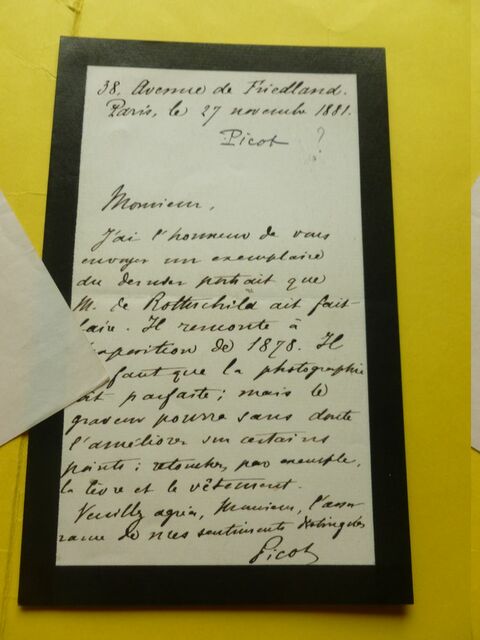 38, Avenue de Friedland.
Paris, le 27 novembre 1881.
Picot ?
Monsieur,
J'ai l'honneur de vous
envoyer un exemplaire
du dernier portrait que
M. de Rothschild ait fait
faire. Il remonte à
exposition de 1878. Il
faut que la photographie
parfaite ; mais le
graveur pourra sans doute
l'améliorer sur certains
points ; retoucher, par exemple,
la lèvre et le vêtement.
Veuillez agréer, Monsieur, l'assu
rance de mes sentiments distingués
Picot